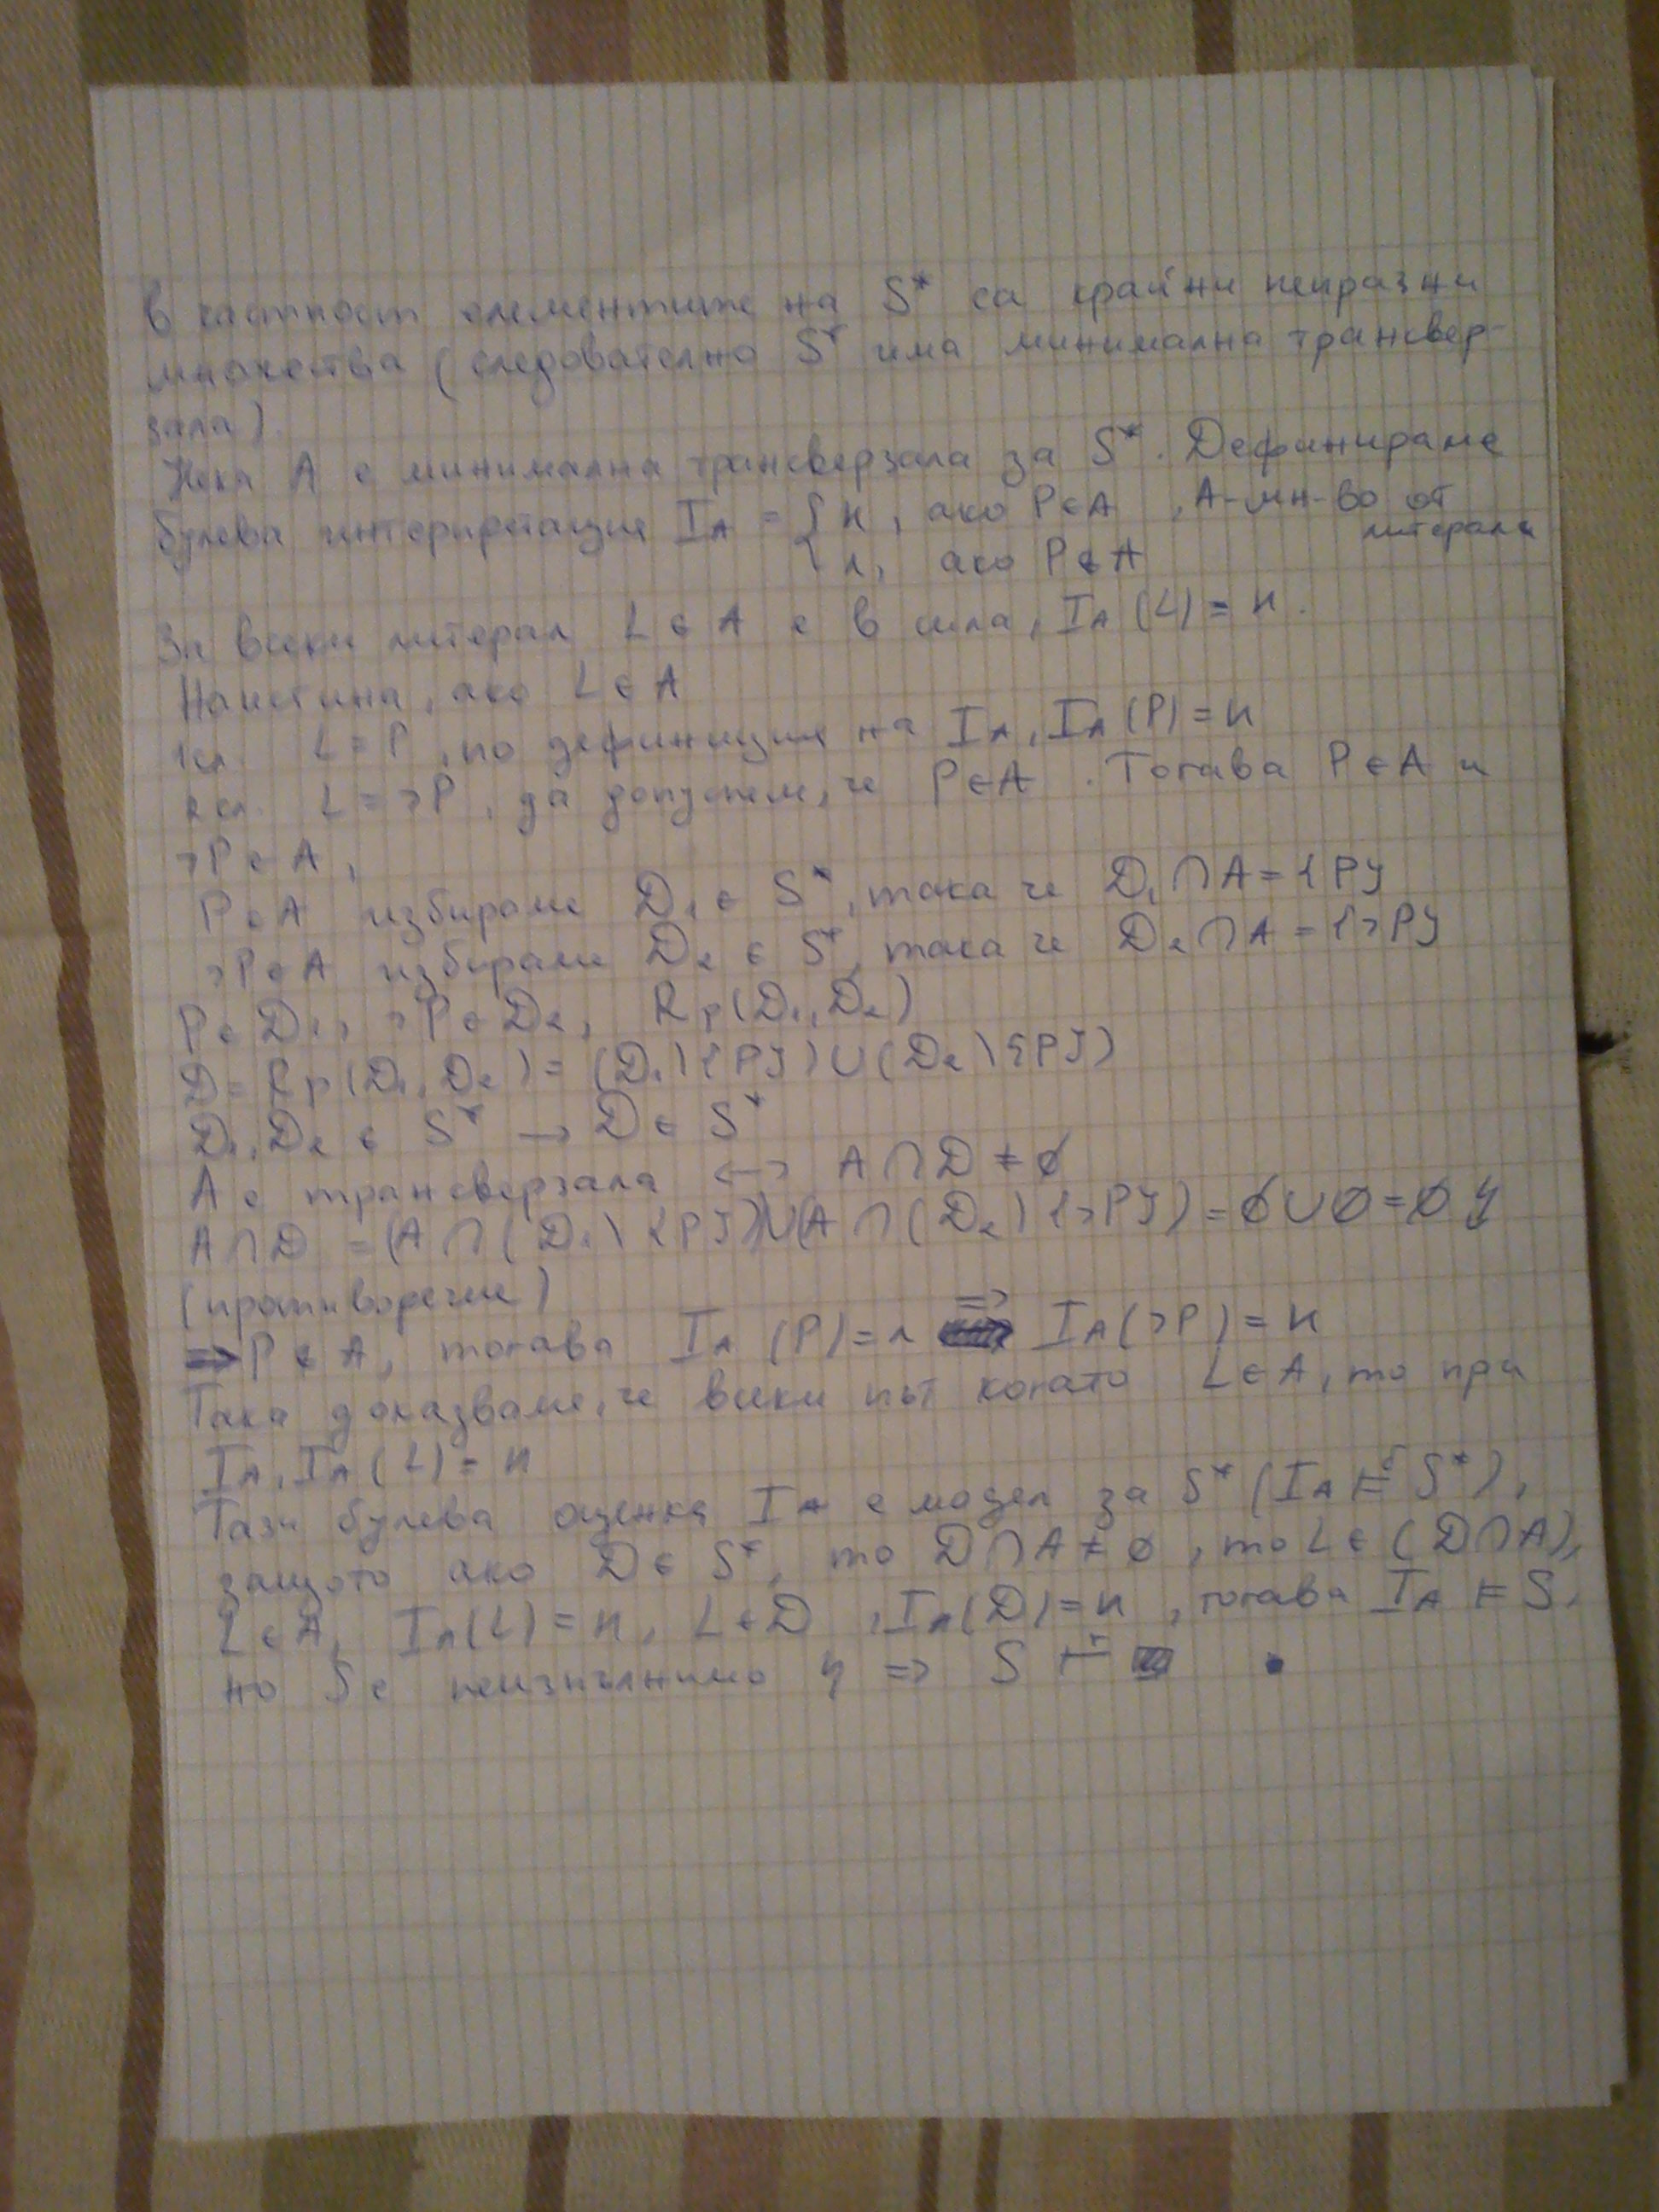 В частност елементите на S* са крайни непразни
множества (следователно S* има минимална трансвер-
зала).
Нека A е минимална трансверзала за S*. Дефинираме
булева интерпретация I_A = { и, ако P ∈ A , A - мн-во от литерали
{ л, ако P ∉ A
За всеки литерал L ∈ A е в сила, I_A (L) = и.
Наистина, ако L ∈ A
1сл. L = P, по дефиниция на I_A, I_A (P) = и
2сл. L = ¬P, да допуснем, че P ∈ A. Тогава P ∈ A и
¬P ∈ A,
P ∈ A избираме D₁ ∈ S*, така че D₁ ∩ A = {P}
¬P ∈ A избираме D₂ ∈ S*, така че D₂ ∩ A = {¬P}
P ∈ D₁, ¬P ∈ D₂, R_P(D₁, D₂)
D = R_P(D₁, D₂) = (D₁ \ {P}) ∪ (D₂ \ {P})
D₁, D₂ ∈ S* → D ∈ S*
A е трансверзала ↔ A ∩ D ≠ ∅
A ∩ D = (A ∩ (D₁ \ {P})) ∪ (A ∩ (D₂ \ {¬P}) = ∅ ∪ ∅ = ∅ ↯
(противоречие)
⇒ P ∉ A, тогава I_A (P) = л ⇒ I_A (¬P) = и
Така доказваме, че всеки път когато L ∈ A, то при
I_A, I_A (L) = и
Тази булева оценка I_A е модел за S* (I_A ⊨ᵇ S*),
защото ако D ∈ S*, то D ∩ A ≠ ∅, то L ∈ (D ∩ A),
L ∈ A, I_A(L) = и, L ∈ D, I_A(D) = и, тогава I_A ⊨ S,
но S е неизпълнимо ↯ ⇒ S ⊢ʳ ■